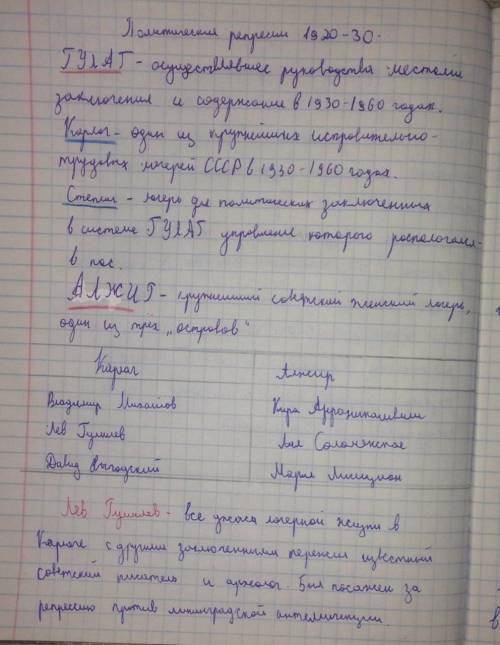 Политические репрессии 1920-30.
ГУЛАГ - осуществлявшее руководства местами
заключения и содержание в 1930-1960 годах.
Карлаг - один из крупнейших исправительно-
трудовых лагерей СССР в 1930-1960 годах.
Степлаг - лагерь для политических заключенных
в системе ГУЛАГ управление которого распологался
в пос.
АЛЖИР - крупнейший советский женский лагерь,
один из трёх „островов"
Карлаг Алжир
Владимир Михайлов Кира Андроникашвили
Лев Гумилев Лия Соломянская
Давид Выгодский Мария Лисициан
Лев Гумилев - все ужасы лагерной жизни в
Карлаге с другими заключенными пережил известный
советский писатель и археолог. Был посажен за
репрессию против ленинградской интеллигенции.